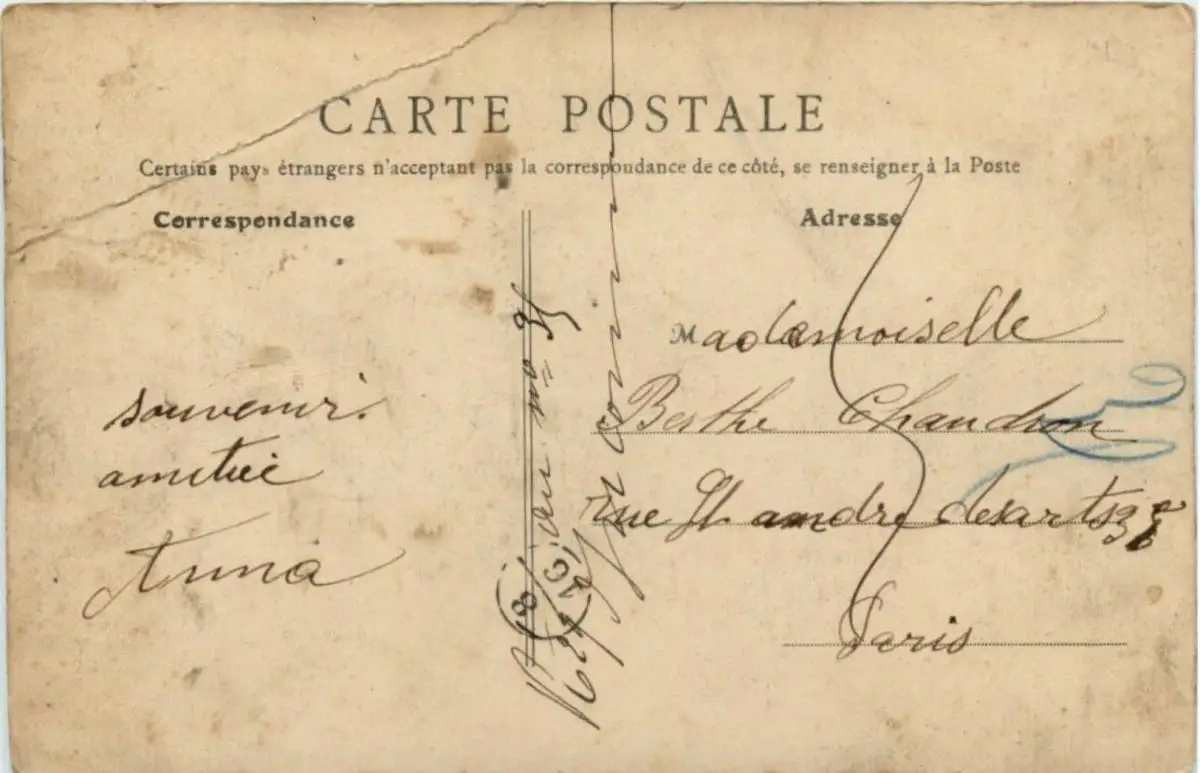 CARTE POSTALE
Certains pays étrangers n'acceptant pas la correspondance de ce côté, se renseigner à la Poste
Correspondance
Adresse
souvenir.
amitié
Anna
au no 35
Mademoiselle
Berthe Chandron
rue St andré des arts
Paris